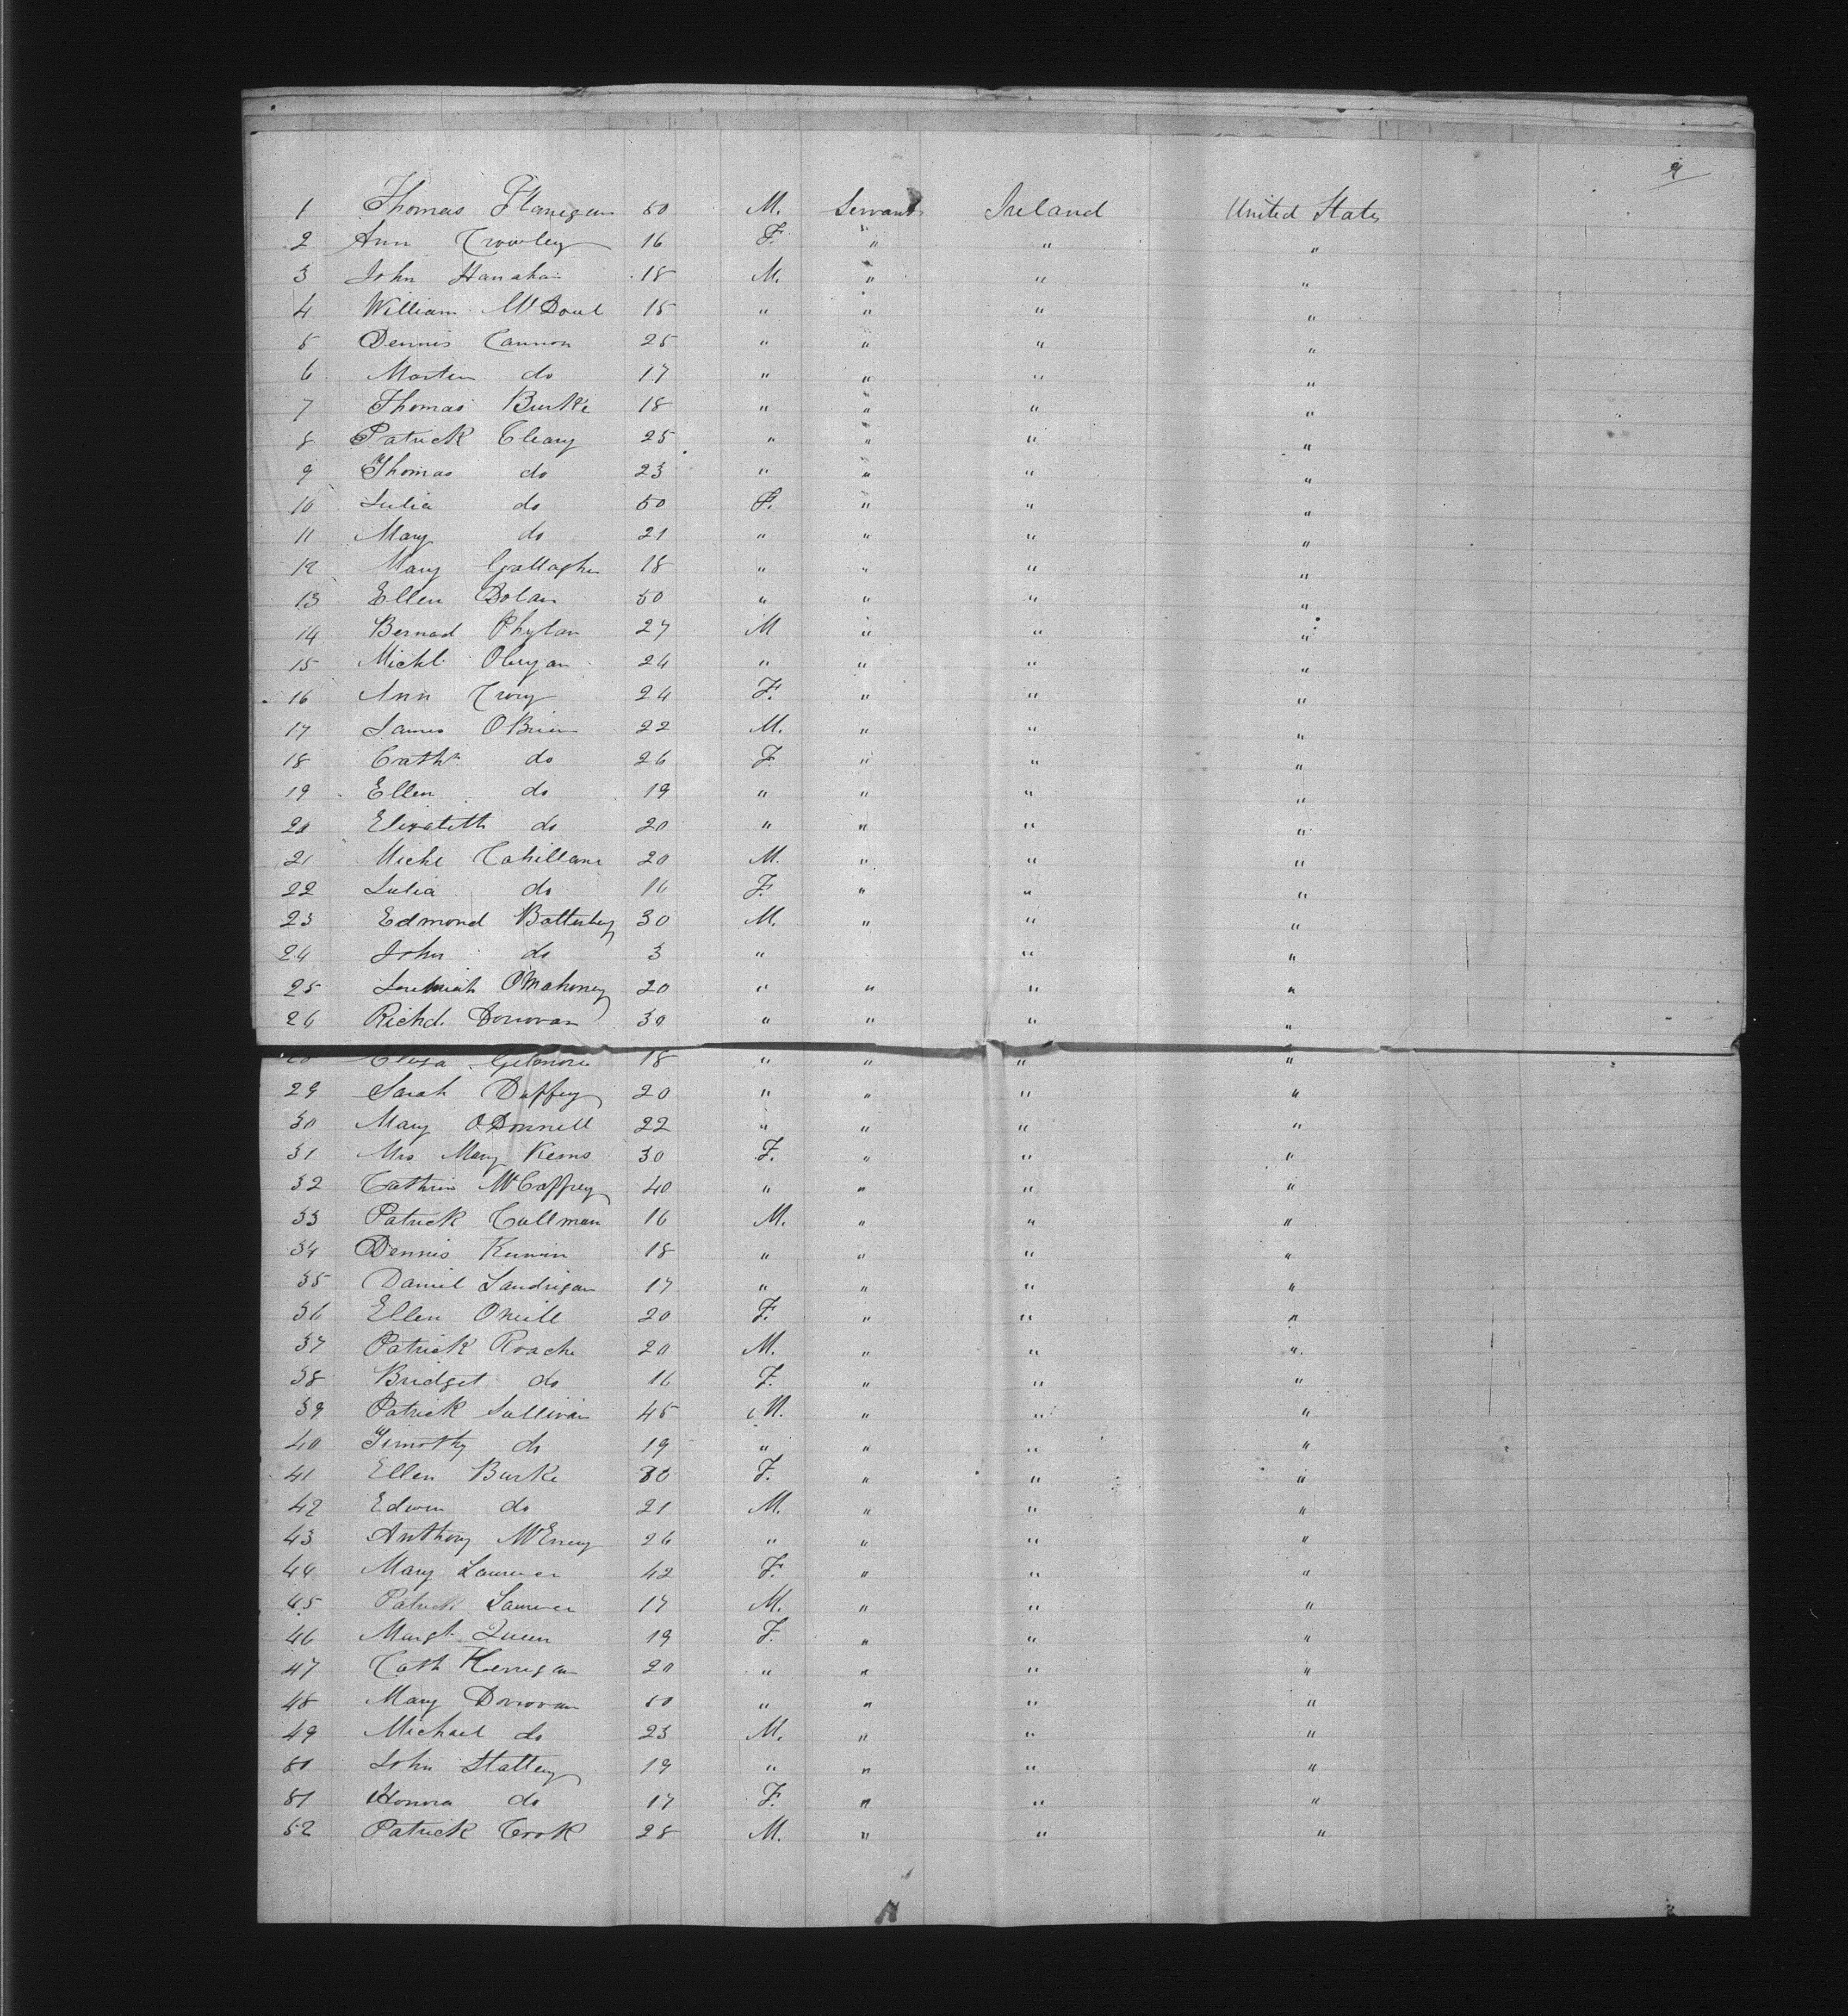 9
1 Thomas Flanigan 50 M. Servant Ireland United States
2 Ann Crowley 16 F. " " "
3 John Hanahan 18 M. " " "
4 William McDowl 15 " " " "
5 Dennis Cannon 25 " " " "
6 Martin do 17 " " " "
7 Thomas Burke 18 " " " "
8 Patrick Cleary 25 " " " "
9 Thomas do 23 " " " "
10 Julia do 50 F. " " "
11 Mary do 21 " " " "
12 Mary Gallagher 18 " " " "
13 Ellen Dolan 50 " " " "
14 Bernad Phylan 27 M " " "
15 Michl 24 " " " "
16 Ann Crory 24 F. " " "
17 James OBrien 22 M. " " "
18 Cath do 26 F. " " "
19 Ellen do 19 " " " "
20 Elizabeth do 20 " " " "
21 Michl Cahillane 20 M. " " "
22 Julia do 16 F. " " "
23 Edmond Battersbey 30 M. " " "
24 John do 3 " " "
25 Jeremiah OMahoney 20 " " " "
26 Richd. Donovan 30 " " " "
Eliza Gilmore 18 " " " "
29 Sarah Duffey 20 " " " "
30 Mary ODonnell 22 " " " "
31 Mrs Mary Kerns 30 F. " " "
32 Cathrin McCaffrey 40 " " " "
33 Patrick Cullman 16 M. " " "
34 Dennis 18 " " " "
35 Daniel Landrigan 17 " " " "
36 Ellen ONeill 20 F. " " "
37 Patrick Roache 20 M. " " "
38 Bridget do 16 F. " " "
39 Patrick Sullivan 45 M. " " "
40 Timothy do 19 " " " "
41 Ellen Burke 30 F. " " "
42 Edwin do 21 M. " " "
43 Anthony McEnery 26 " " " "
44 Mary 42 F. " " "
45 Patrick 17 M. " " "
46 Margt. Queen 19 F. " " "
47 Cath Henigan 20 " " " "
48 Mary Donovan 50 " " " "
49 Michael do 23 M. " " "
50 John Slattery 19 " " " "
51 Honora do 17 F. " " "
52 Patrick Cook 28 M. " " "